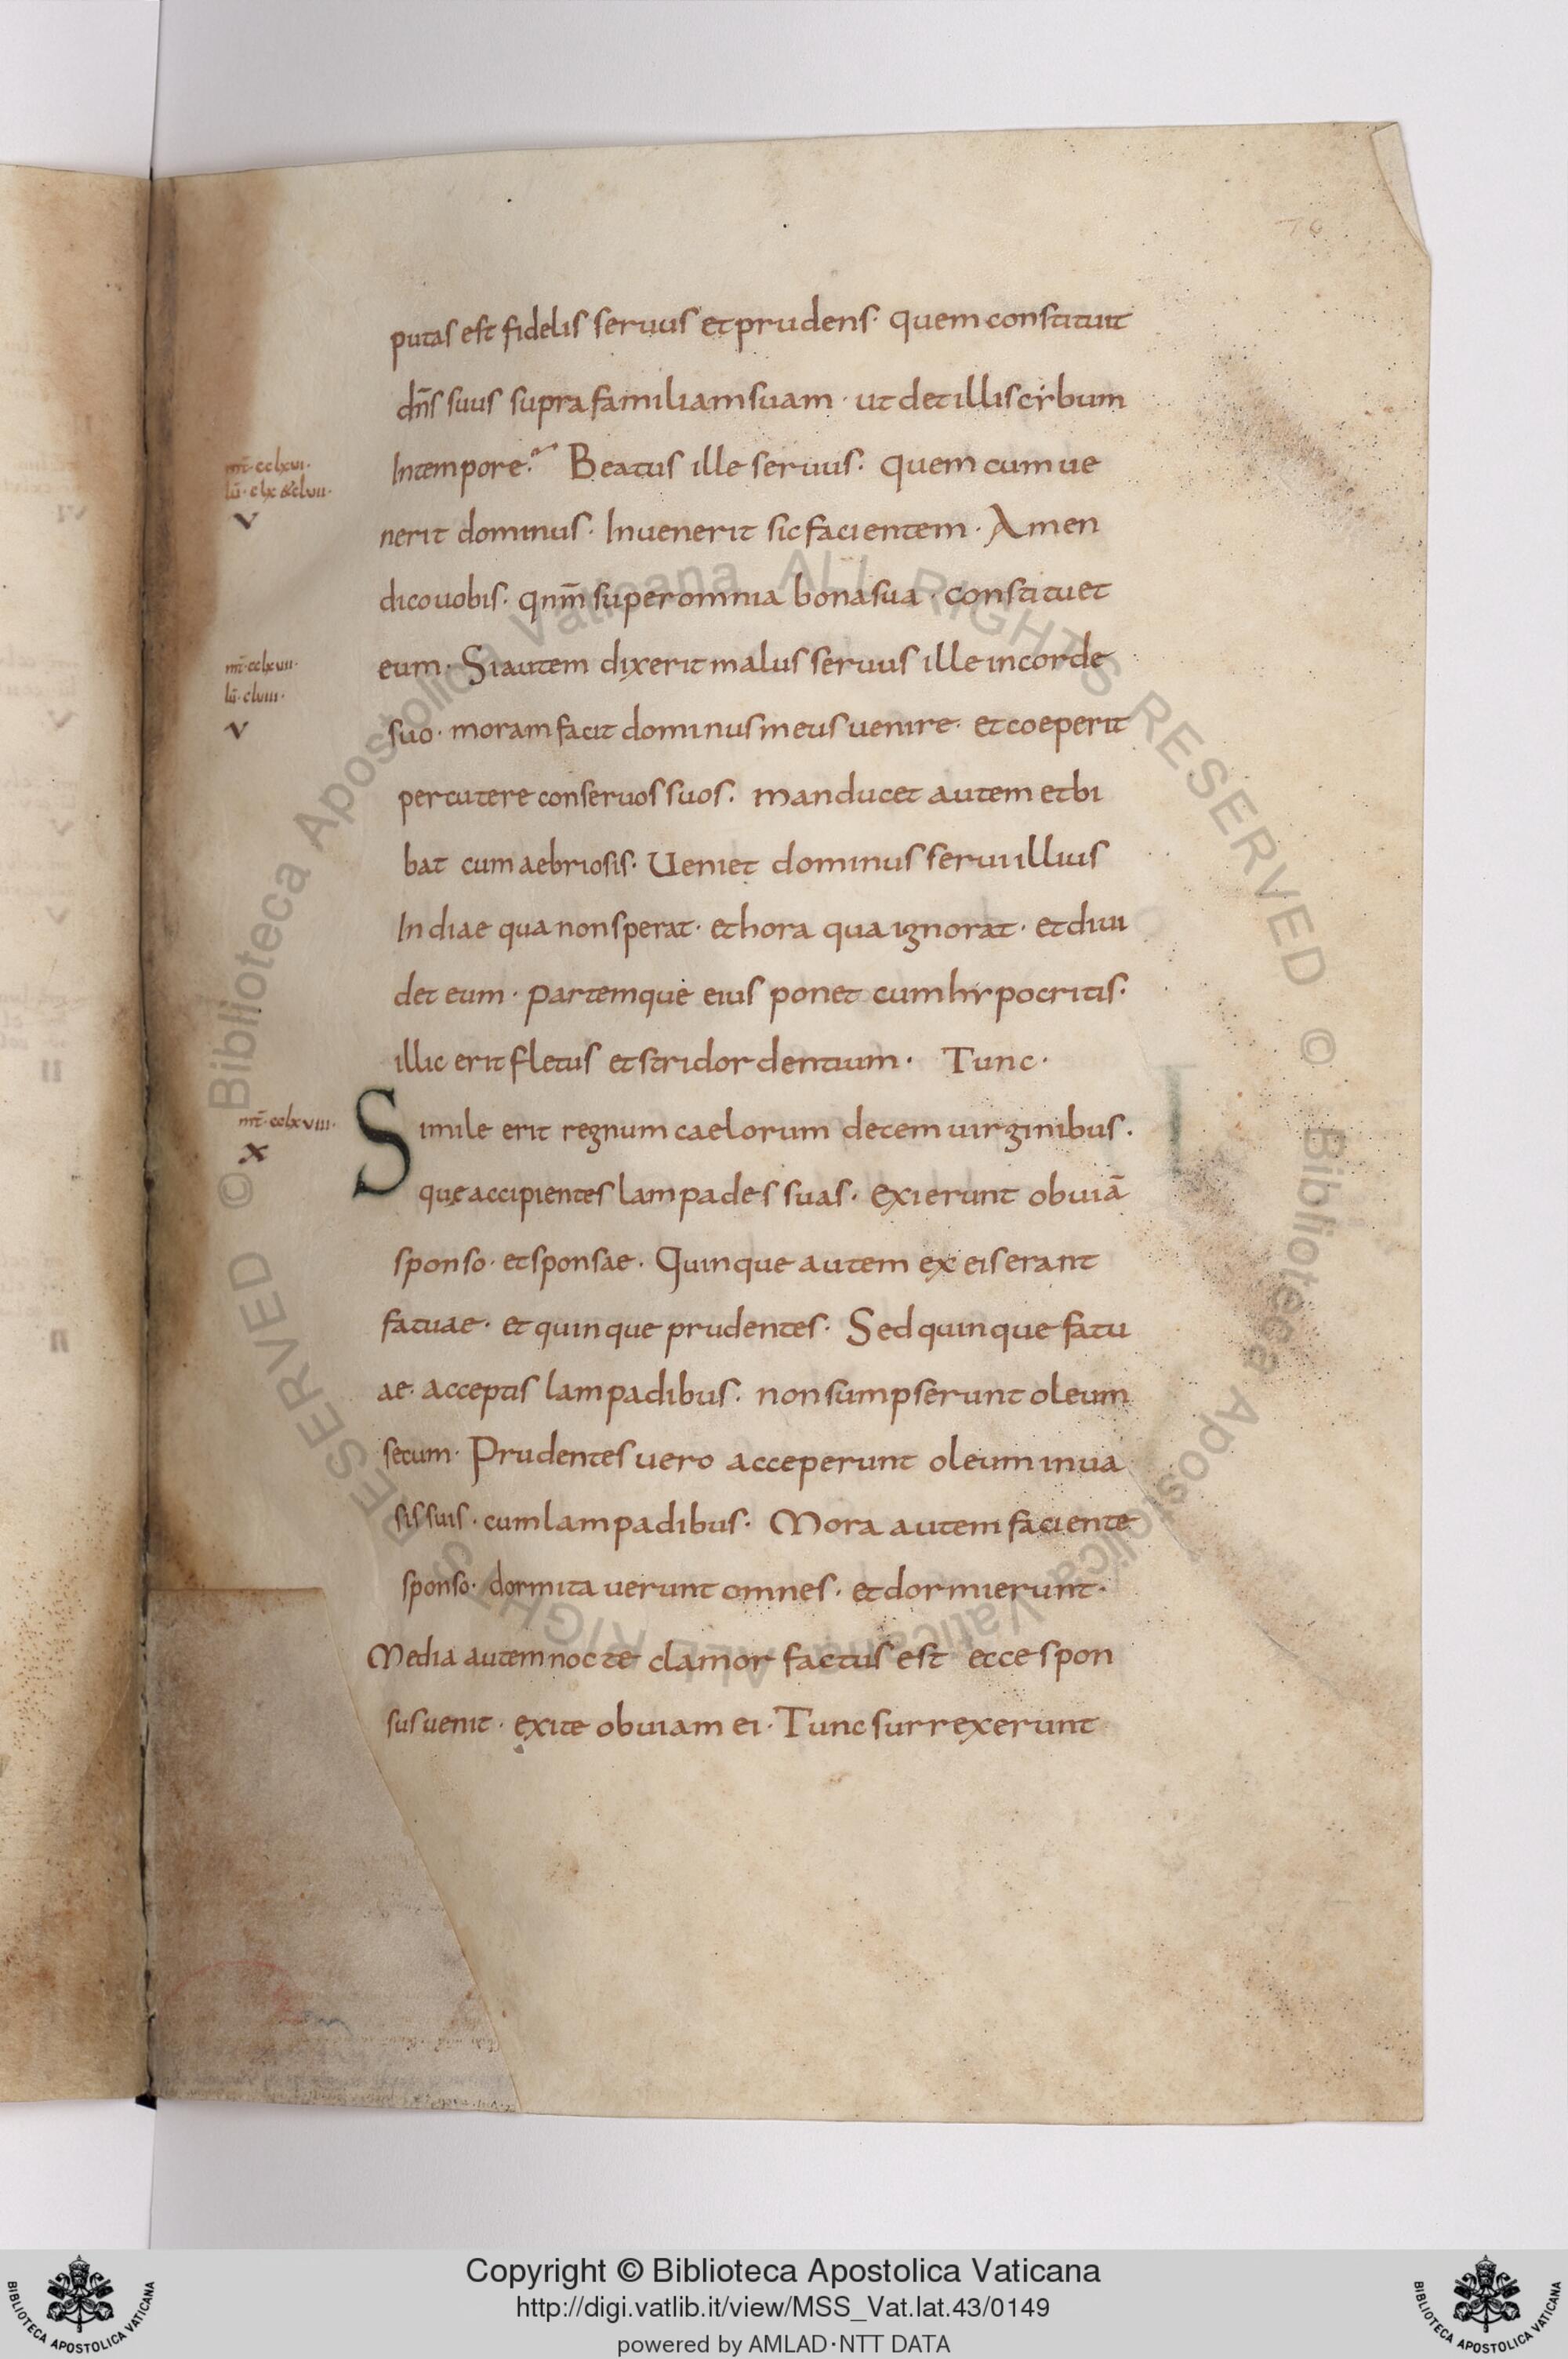 76
putas est fidelis seruus et prudens· quem constituit
dn̄s suus supra familiam suam· ut det illis cybum
In tempore· Beatus ille seruus· quem cum ue
mt̄·cclxvi·
lū·clx &clvii·
v
nerit dominus· Inuenerit sic facientem· Amen
dico uobis· qnm̄ super omnia bona sua· constituet
eum· Si autem dixerit malus seruus ille in corde
mt̄·cclxvii·
lū·clviii·
v
suo· moram facit dominus meus uenire· et coeperit
percutere conseruos suos· manducet autem et bi
bat cum aebriosis· Ueniet dominus serui illius
In diae qua non sperat· et hora qua ignorat· et diui
det eum· partemque eius ponet cum hypocritis·
illic erit fletus et stridor dentium· Tunc·
Simile erit regnum caelorum decem uirginibus·
mt̄·cclxviii·
x
que accipientes lampades suas· exierunt obuiā
sponso· et sponsae· Quinque autem ex eis erant
fatuae· et quinque prudentes· Sed quinque fatu
ae· acceptis lampadibus· non sumpserunt oleum
secum· Prudentes uero acceperunt oleum in ua
sis suis· cum lampadibus· Mora autem faciente
sponso· dormitauerunt omnes· et dormierunt·
Media autem nocte clamor factus est ecce spon
sus uenit· exite obuiam ei· Tunc surrexerunt
© Biblioteca Apostolica Vaticana ALL RIGHTS RESERVED © Biblioteca Apostolica Vaticana ALL RIGHTS RESERVED
Copyright © Biblioteca Apostolica Vaticana
http://digi.vatlib.it/view/MSS_Vat.lat.43/0149
powered by AMLAD·NTT DATA
BIBLIOTECA APOSTOLICA VATICANA
BIBLIOTECA APOSTOLICA VATICANA